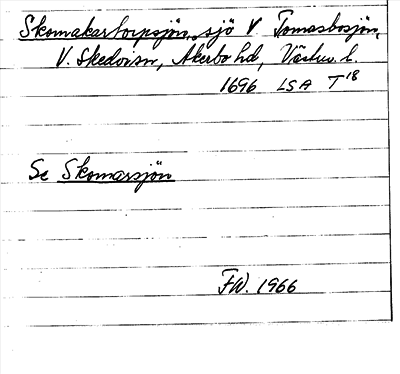 Skomakartorpsjön, sjö V Tomasbosjön,
V. Skedvi sn, Akerbo hd, Västm. l.
1696 LSA T18
Se Skomarsjön
FW. 1966